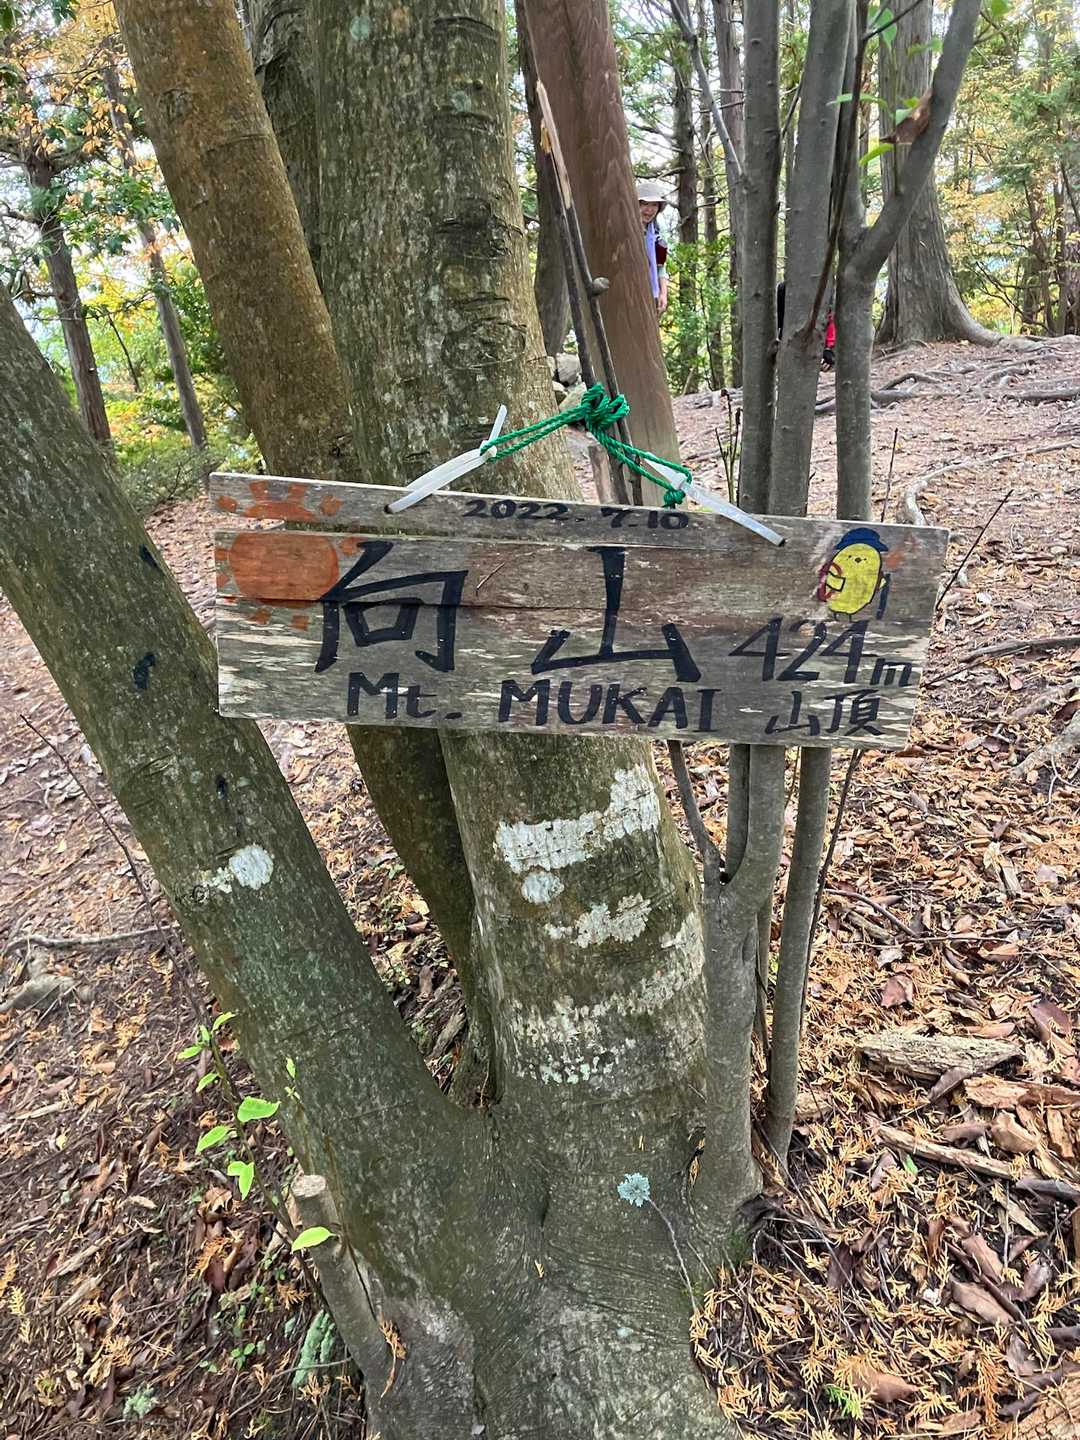 2022.7.10
向山 424m
Mt. MUKAI 山頂